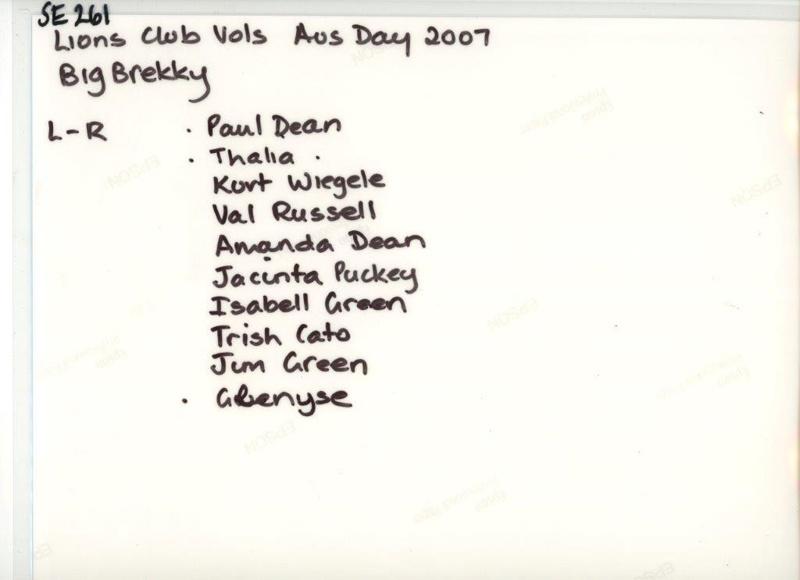 SE 261
Lions Club Vols Aus Day 2007
Big Brekky
L-R · Paul Dean
· Thalia ·
Kurt Wiegele
Val Russell
Amanda Dean
Jacinta Puckey
Isabell Green
Trish Cato
Jim Green
· Glenyse
EPSON
EPSON
EPSON
EPSON
EPSON
EPSON